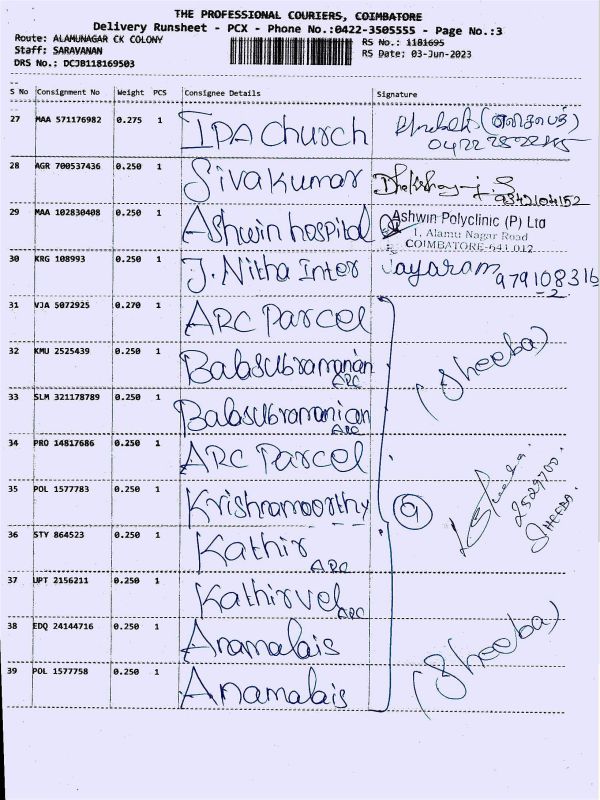 THE PROFESSIONAL COURIERS, COIMBATORE
Delivery Runsheet - PCX - Phone No.:0422-3505555 - Page No.:3
Route: ALAMUNAGAR CK COLONY RS No.: 1181695
Staff: SARAVANAN RS Date: 03-Jun-2023
DRS No.: DCJB118169503
S No Consignment No Weight PCS Consignee Details Signature
27 MAA 571176982 0.275 1 IPA Church
28 AGR 700537436 0.250 1 Sivakumar 9342104152
29 MAA 102830408 0.250 1 Ashwin hospital Ashwin Polyclinic (P) Ltd
1, Alamu Nagar Road
COIMBATORE-641 012
30 KRG 108993 0.250 1 J. Nitha Inter Jayaram 979108316
-2.
31 VJA 5072925 0.270 1 ARC Parcel
32 KMU 2525439 0.250 1 Balasubramanian (Sheeba)
ARC
33 SLM 321178789 0.250 1 Balasubramanian
ARC
34 PRO 14817686 0.250 1 ARC Parcel
35 POL 1577783 0.250 1 Krishnamoorthy 9
2529700.
SHEEBA.
36 STY 864523 0.250 1 Kathir
ARC
37 UPT 2156211 0.250 1 Kathirvel
ARC
38 EDQ 24144716 0.250 1 Anamalais (Sheeba)
39 POL 1577758 0.250 1 Anamalais